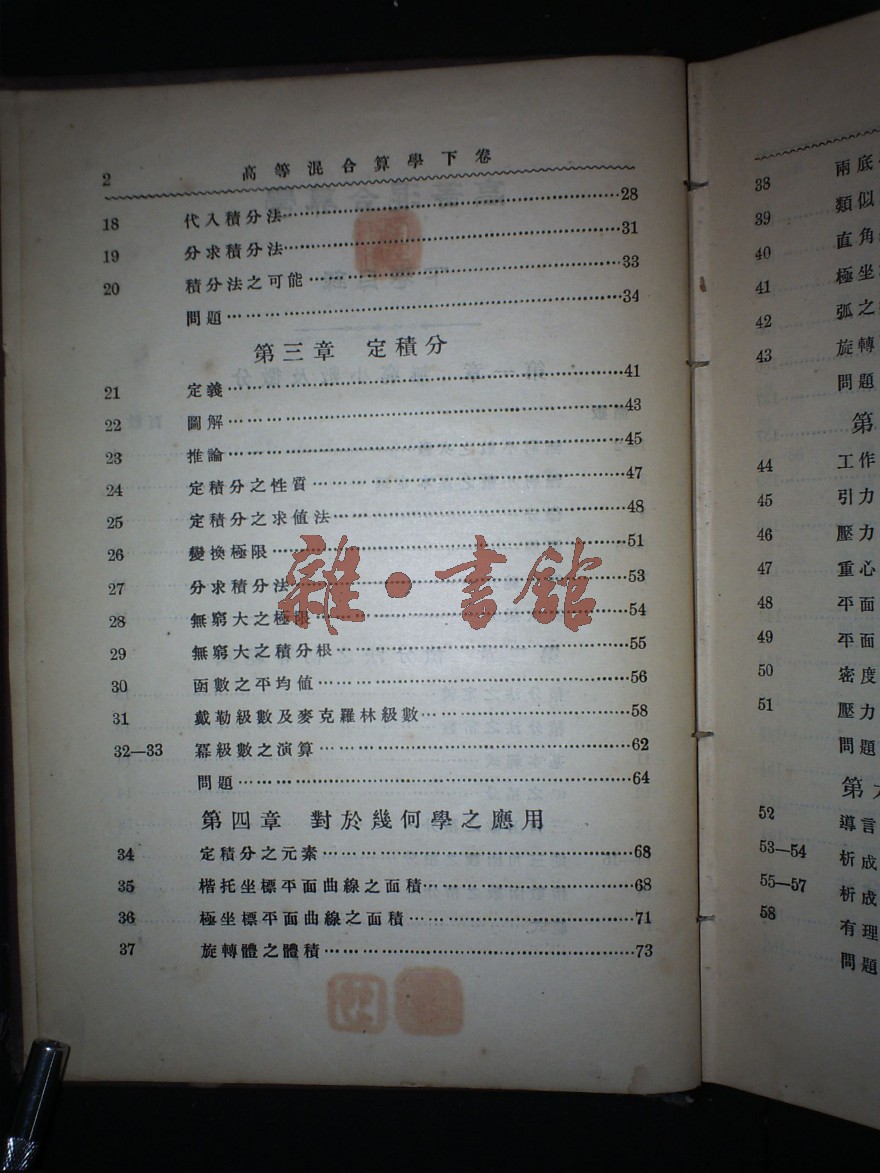 2 高等混合算學下卷
18 代入積分法……28
19 分求積分法……31
20 積分法之可能……33
問題……34
第三章 定積分
21 定義……41
22 圖解……43
23 推論……45
24 定積分之性質……47
25 定積分之求值法……48
26 變換極限……51
27 分求積分法……53
28 無窮大之極限……54
29 無窮大之積分根……55
30 函數之平均値……56
31 戴勒級數及麥克羅林級數……58
32—33 冪級數之演算……62
問題……64
第四章 對於幾何學之應用
34 定積分之元素……68
35 楷托坐標平面曲線之面積……68
36 極坐標平面曲線之面積……71
37 旋轉體之體積……73
雜·書館
38 兩底
39 類似
40 直角
41 極坐
42 弧之
43 旋轉
問題
第
44 工作
45 引力
46 壓力
47 重心
48 平面
49 平面
50 密度
51 壓力
問題
第
52 導言
53—54 析成
55—57 析成
58 有理
問題